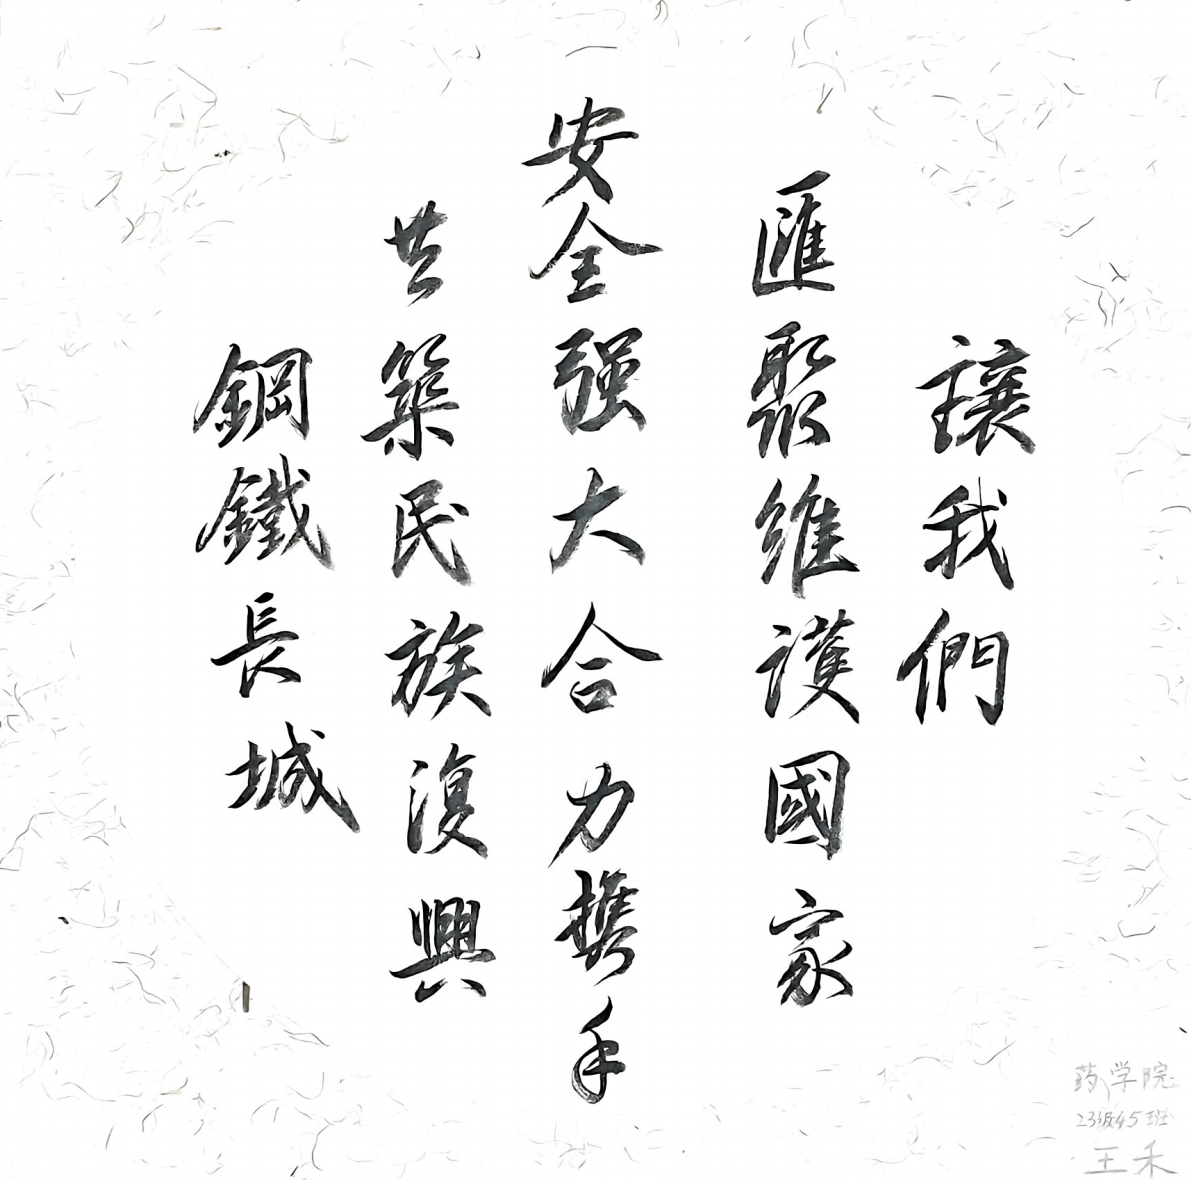 讓我們
匯聚維護國家
安全强大合力攜手
共築民族復興
鋼鐵長城
药学院
23级45班
王禾